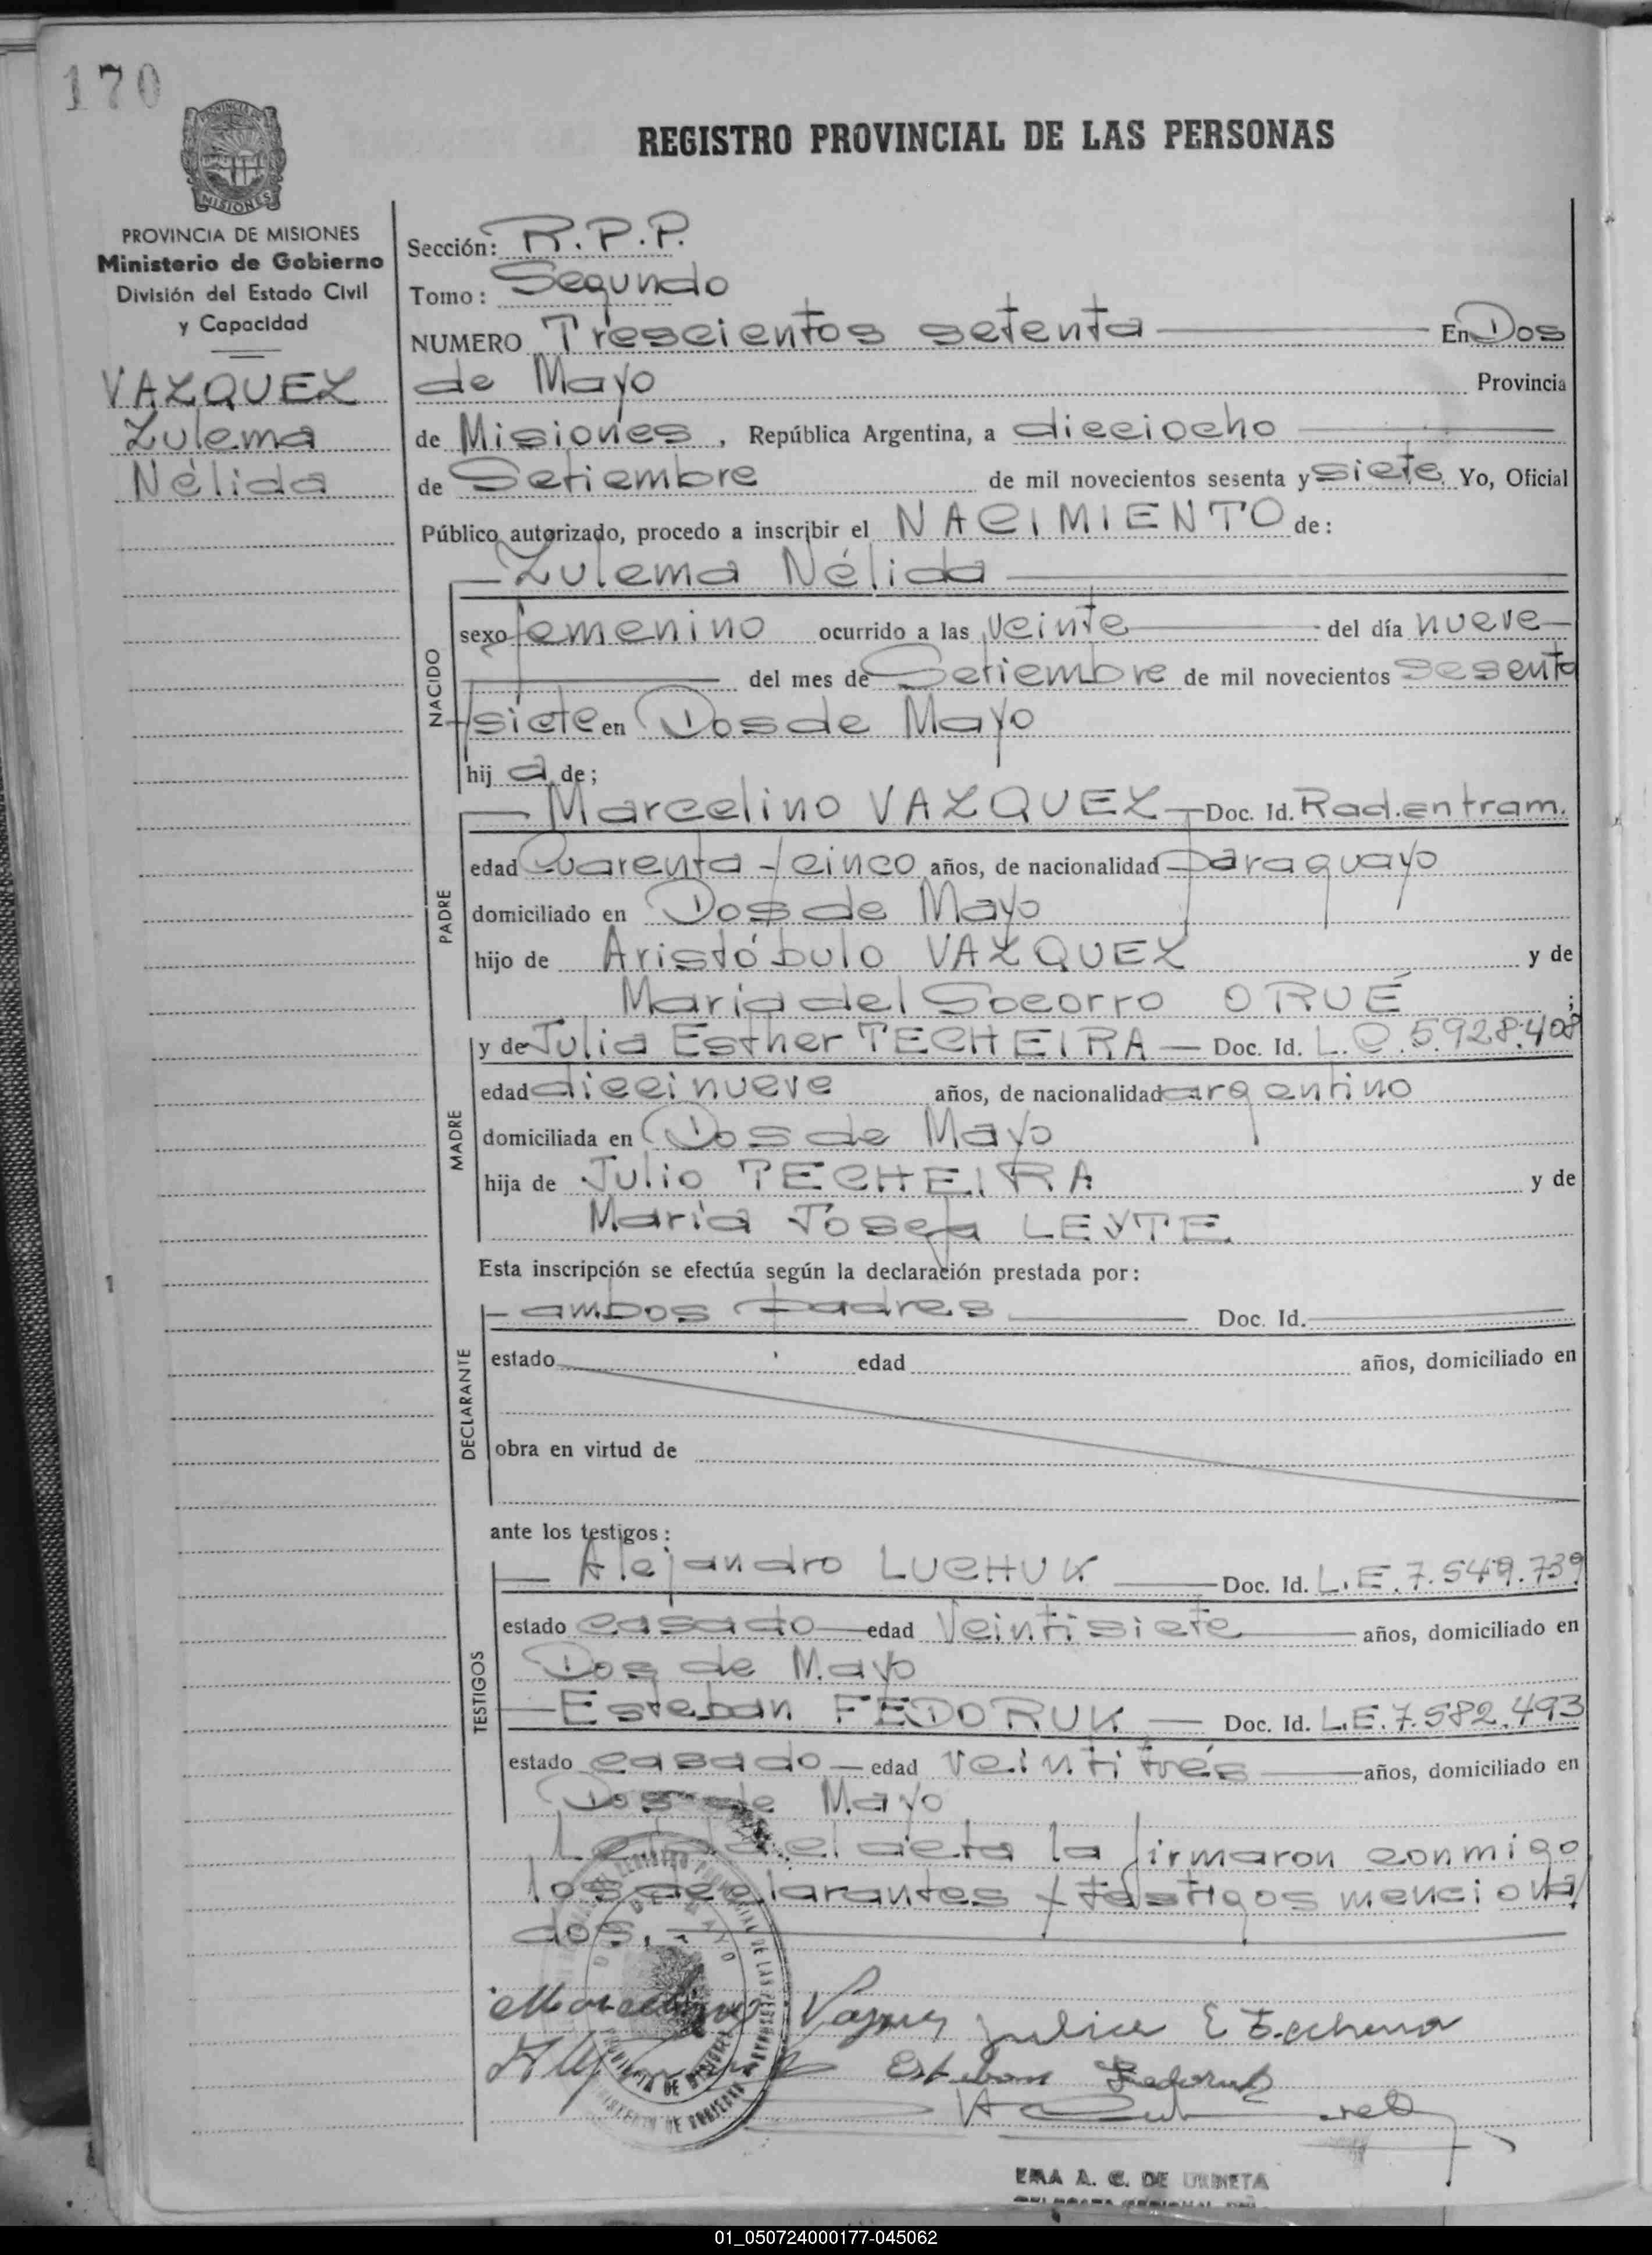 170
REGISTRO PROVINCIAL DE LAS PERSONAS
PROVINCIA DE
MISIONES
PROVINCIA DE MISIONES
Ministerio de Gobierno
División del Estado Civil
y Capacidad
VAZQUEZ
Zulema
Nélida
Sección: R.P.P.
Tomo: Segundo
NUMERO Trescientos setenta En Dos
de Mayo Provincia
de Misiones, República Argentina, a dieciocho
de Setiembre de mil novecientos sesenta y siete. Yo, Oficial
Público autorizado, procedo a inscribir el NACIMIENTO de:
Zulema Nélida
NACIDO
sexo femenino ocurrido a las veinte del día nueve
del mes de Setiembre de mil novecientos sesenta
y siete en Dos de Mayo
hija de;
PADRE
Marcelino VAZQUEZ Doc. Id. Rad. en tram.
edad Cuarenta y cinco años, de nacionalidad paraguayo
domiciliado en Dos de Mayo
hijo de Aristóbulo VAZQUEZ y de
María del Socorro ORUÉ ;
MADRE
y de Julia Esther TECHEIRA Doc. Id. L.C. 5.928.408
edad diecinueve años, de nacionalidad argentino
domiciliada en Dos de Mayo
hija de Julio TECHEIRA y de
María Josefa LEYTE
Esta inscripción se efectúa según la declaración prestada por:
DECLARANTE
ambos padres Doc. Id.
estado edad años, domiciliado en
obra en virtud de
ante los testigos:
TESTIGOS
Alejandro LUCHUK Doc. Id. L.E. 7.549.739
estado casado edad Veintisiete años, domiciliado en
Dos de Mayo
Esteban FEDORUK Doc. Id. L.E. 7.582.493
estado casado edad Veintitrés años, domiciliado en
Dos de Mayo
Leída el acta la firmaron conmigo
los declarantes y testigos menciona
dos.
Marcelino Vazquez Julia E Techeira
Esteban Fedoruk
EMA A. C. DE URRNETA
01_050724000177-045062